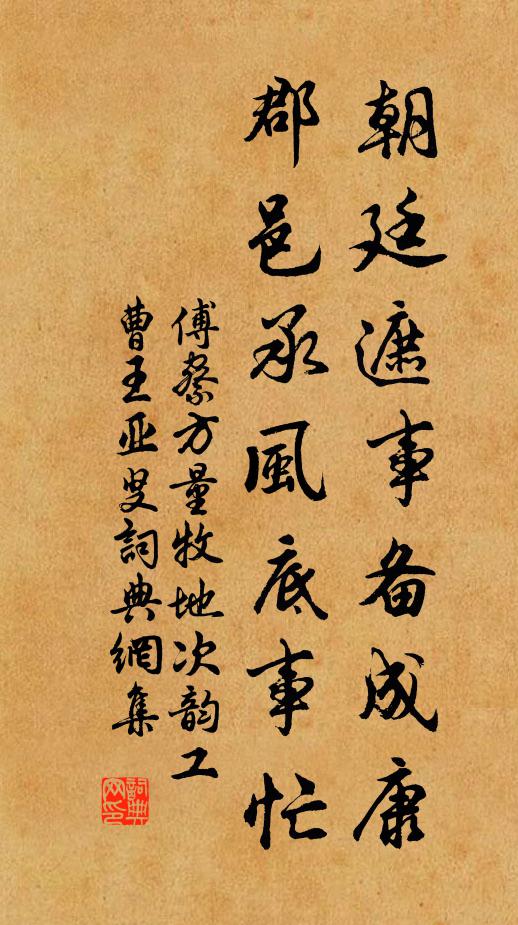 朝廷遮事备成康
郡邑承風底事忙
傅察方量牧地次韵工
曹王亚叟詞典網集
詞典网印